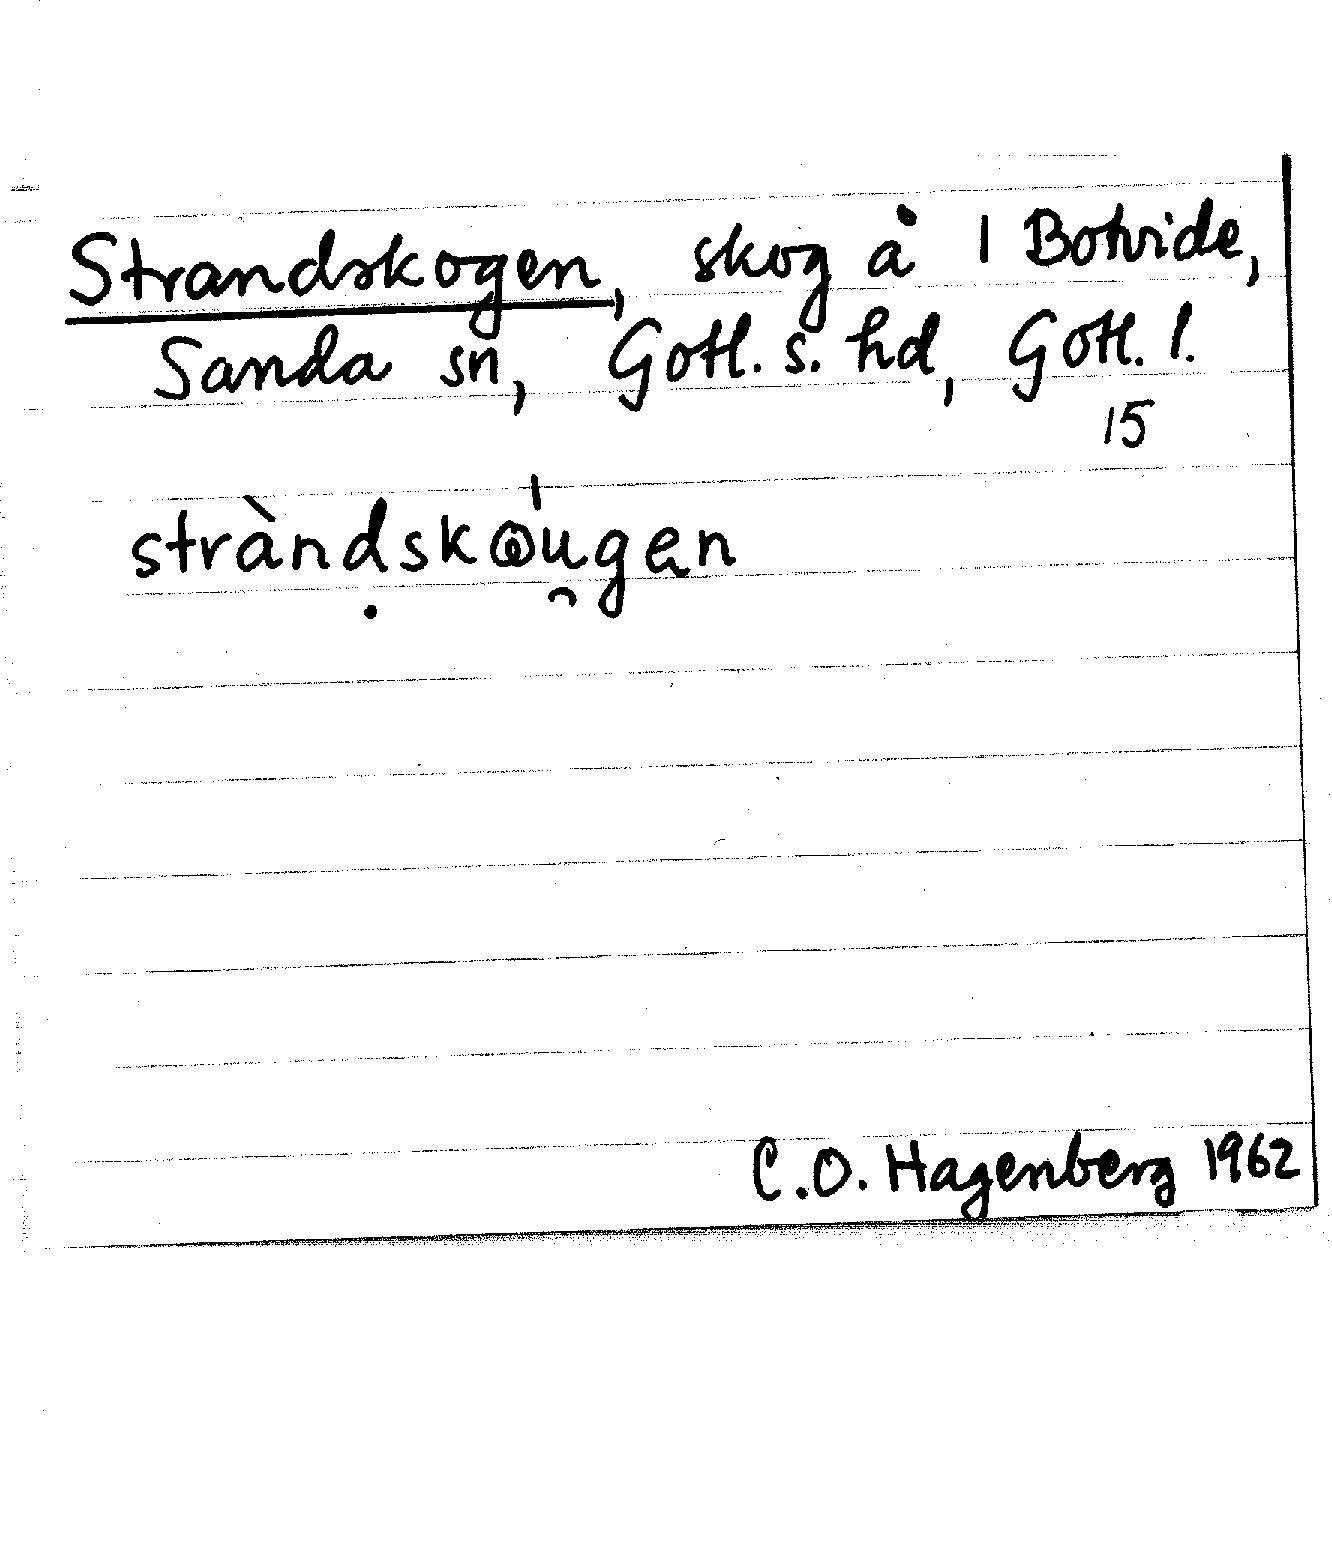 Strandskogen, skog å 1 Botvide,
Sanda sn, Gotl. s. hd, Gotl. l.
15
stràndskωu̯gɐn
C.O. Hagenberg 1962